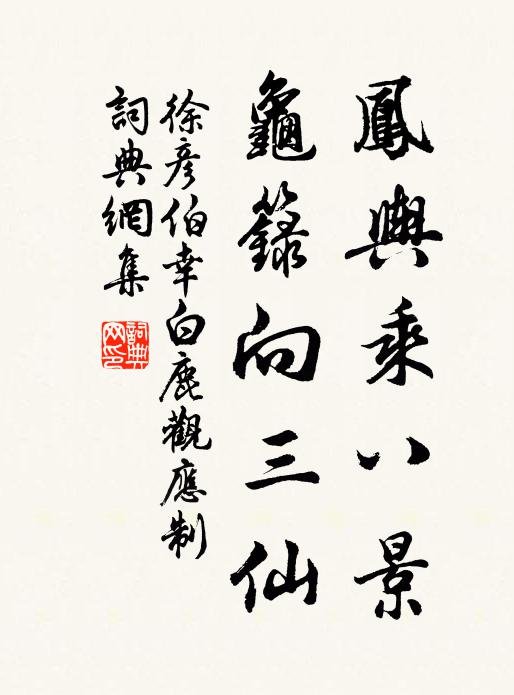 鳳輿乘八景
龜籙向三仙
徐彦伯幸白鹿觀應制
詞典網集
詞典網印